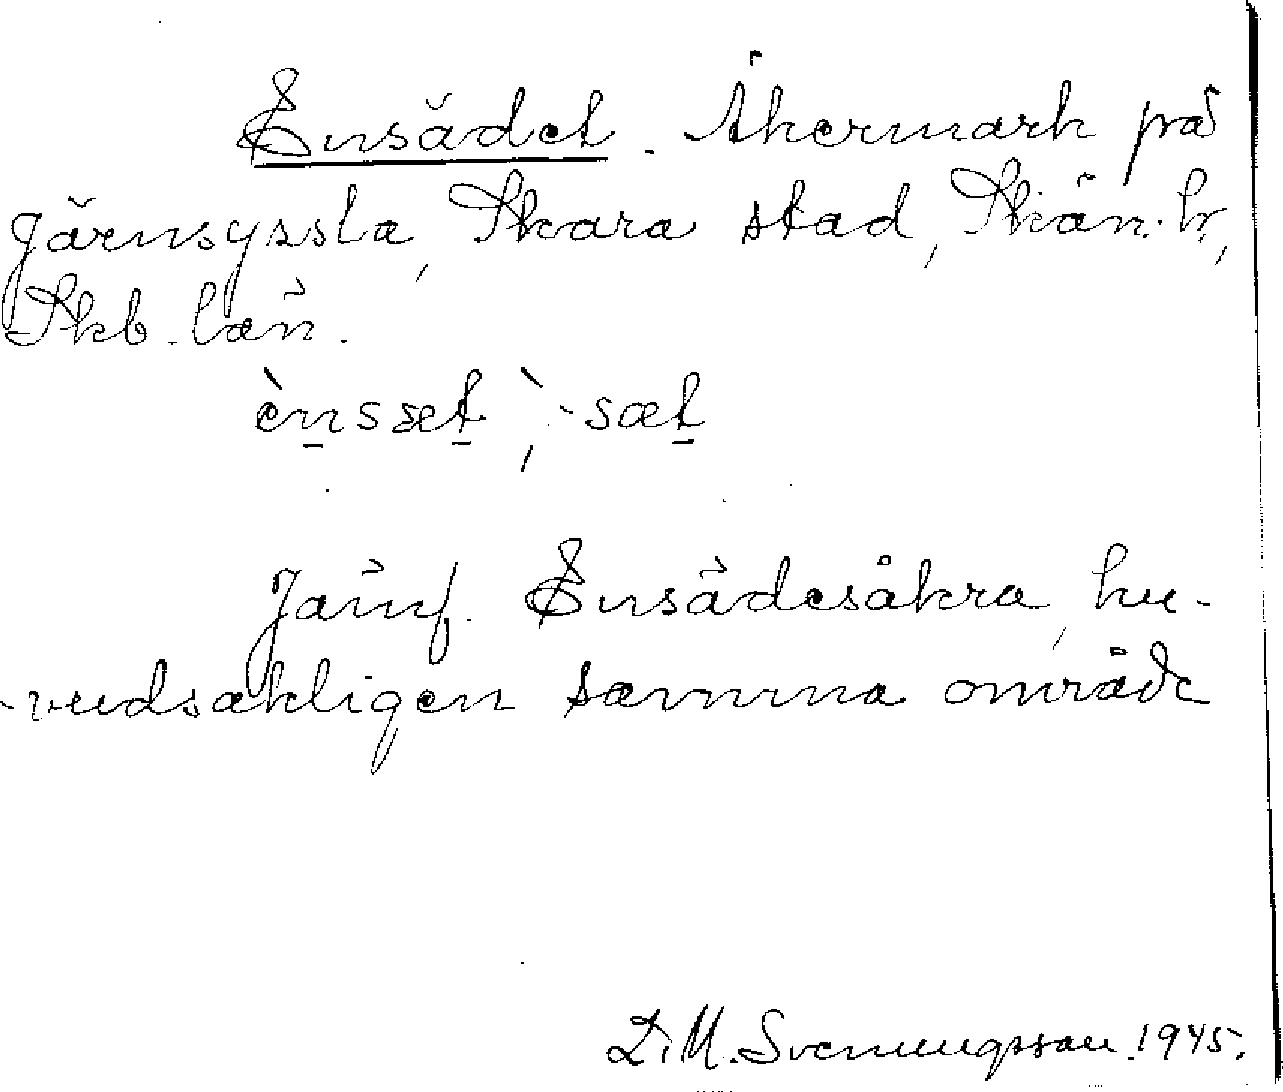 Ensädet. Åkermark på
Järnsyssla, Skara stad, Skån. hr,
Skb. län.
è̀nsset, -sæt
Jämf. Ensädesåkra, hu-
vudsakligen samma område
D. M. Svenungsson. 1945.